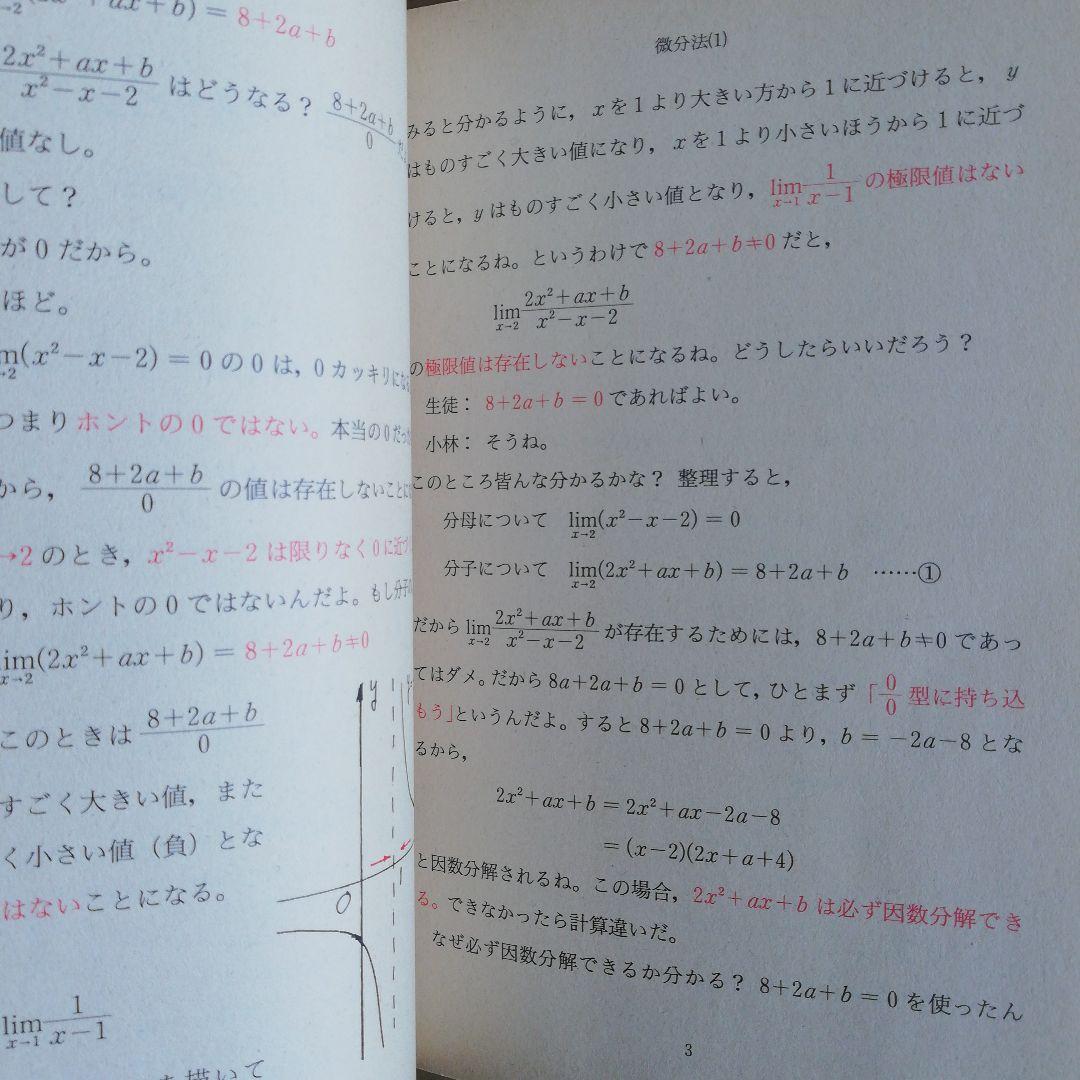 = 8+2a+b
2x²+ax+b / x²−x−2 はどうなる？ 8+2a+b / 0
値なし。
して？
が0だから。
ほど。
(x²−x−2) = 0 の0は，0カッキリにな
つまりホントの0ではない。本当の0だっ
から， 8+2a+b / 0 の値は存在しないことに
→2のとき，x²−x−2は限りなく0に近づ
り，ホントの0ではないんだよ。もし分子の
lim x→2 (2x²+ax+b) = 8+2a+b≠0
y
このときは 8+2a+b / 0
すごく大きい値，また
く小さい値（負）とな
はないことになる。
O
lim x→1 1 / x−1
を描いて
微分法(1)
みると分かるように，xを1より大きい方から1に近づけると，y
はものすごく大きい値になり，xを1より小さいほうから1に近づ
けると，yはものすごく小さい値となり，lim x→1 1 / x−1 の極限値はない
ことになるね。というわけで8+2a+b≠0だと，
lim x→2 2x²+ax+b / x²−x−2
の極限値は存在しないことになるね。どうしたらいいだろう？
生徒： 8+2a+b = 0であればよい。
小林： そうね。
このところ皆んな分かるかな？ 整理すると，
分母について lim x→2 (x²−x−2) = 0
分子について lim x→2 (2x²+ax+b) = 8+2a+b ……①
だから lim x→2 2x²+ax+b / x²−x−2 が存在するためには，8+2a+b≠0であっ
てはダメ。だから8a+2a+b = 0として，ひとまず「0 / 0 型に持ち込
もう」というんだよ。すると8+2a+b = 0より，b = −2a−8とな
るから，
2x²+ax+b = 2x²+ax−2a−8
= (x−2)(2x+a+4)
と因数分解されるね。この場合，2x²+ax+bは必ず因数分解でき
る。できなかったら計算違いだ。
なぜ必ず因数分解できるか分かる？ 8+2a+b = 0を使ったん
3